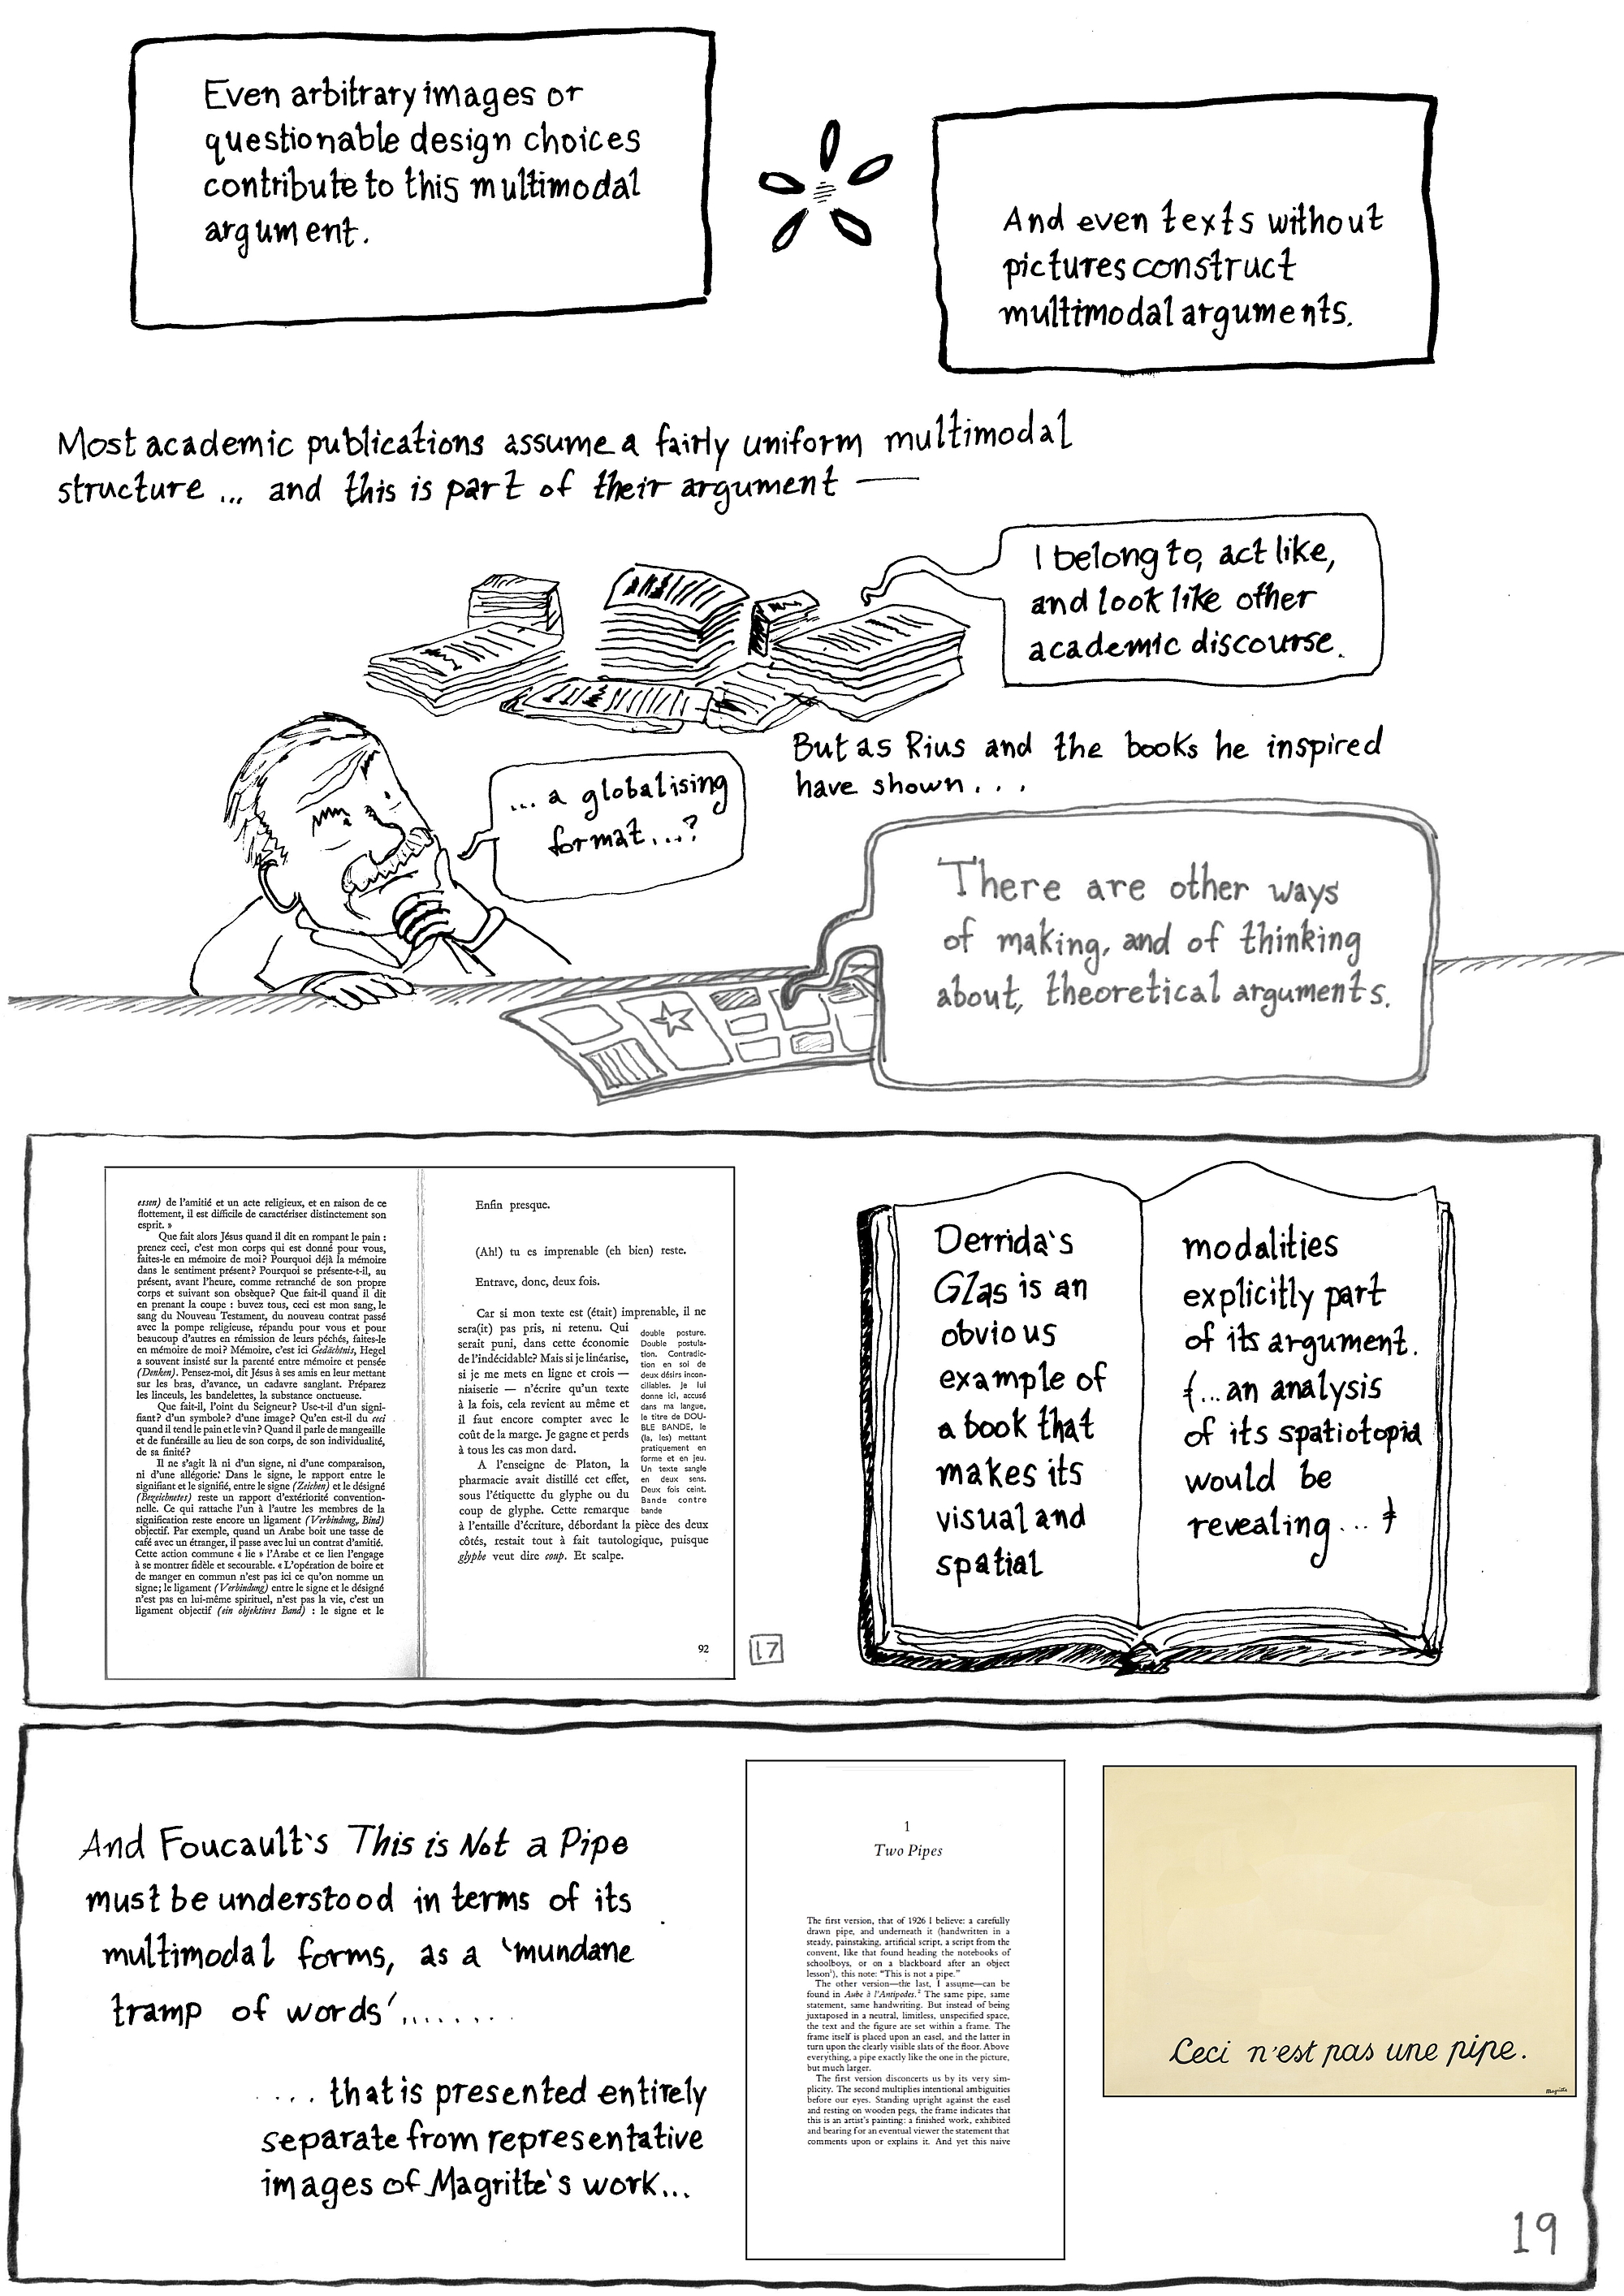 Even arbitrary images or
questionable design choices
contribute to this multimodal
argument.
And even texts without
pictures construct
multimodal arguments.
Most academic publications assume a fairly uniform multimodal
structure ... and this is part of their argument —
I belong to, act like,
and look like other
academic discourse.
... a globalising
format...?
But as Rius and the books he inspired
have shown...
There are other ways
of making, and of thinking
about, theoretical arguments.
essen) de l'amitié et un acte religieux, et en raison de ce
flottement, il est difficile de caractériser distinctement son
esprit. »
Que fait alors Jésus quand il dit en rompant le pain :
prenez ceci, c'est mon corps qui est donné pour vous,
faites-le en mémoire de moi? Pourquoi déjà la mémoire
dans le sentiment présent? Pourquoi se présente-t-il, au
présent, avant l'heure, comme retranché de son propre
corps et suivant son obsèque? Que fait-il quand il dit
en prenant la coupe : buvez tous, ceci est mon sang, le
sang du Nouveau Testament, du nouveau contrat passé
avec la pompe religieuse, répandu pour vous et pour
beaucoup d'autres en rémission de leurs péchés, faites-le
en mémoire de moi? Mémoire, c'est ici Gedächtnis, Hegel
a souvent insisté sur la parenté entre mémoire et pensée
(Denken). Pensez-moi, dit Jésus à ses amis en leur mettant
sur les bras, d'avance, un cadavre sanglant. Préparez
les linceuls, les bandelettes, la substance onctueuse.
Que fait-il, l'oint du Seigneur? Use-t-il d'un signi-
fiant? d'un symbole? d'une image? Qu'en est-il du ceci
quand il tend le pain et le vin? Quand il parle de mangeaille
et de funéraille au lieu de son corps, de son individualité,
de sa finité?
Il ne s'agit là ni d'un signe, ni d'une comparaison,
ni d'une allégorie. Dans le signe, le rapport entre le
signifiant et le signifié, entre le signe (Zeichen) et le désigné
(Bezeichnetes) reste un rapport d'extériorité convention-
nelle. Ce qui rattache l'un à l'autre les membres de la
signification reste encore un ligament (Verbindung, Bind)
objectif. Par exemple, quand un Arabe boit une tasse de
café avec un étranger, il passe avec lui un contrat d'amitié.
Cette action commune « lie » l'Arabe et ce lien l'engage
à se montrer fidèle et secourable. « L'opération de boire et
de manger en commun n'est pas ici ce qu'on nomme un
signe; le ligament (Verbindung) entre le signe et le désigné
n'est pas en lui-même spirituel, n'est pas la vie, c'est un
ligament objectif (ein objektives Band) : le signe et le
Enfin presque.
(Ah!) tu es imprenable (eh bien) reste.
Entrave, donc, deux fois.
Car si mon texte est (était) imprenable, il ne
sera(it) pas pris, ni retenu. Qui
serait puni, dans cette économie
de l'indécidable? Mais si je linéarise,
si je me mets en ligne et crois —
niaiserie — n'écrire qu'un texte
à la fois, cela revient au même et
il faut encore compter avec le
coût de la marge. Je gagne et perds
à tous les cas mon dard.
A l'enseigne de Platon, la
pharmacie avait distillé cet effet,
sous l'étiquette du glyphe ou du
coup de glyphe. Cette remarque
à l'entaille d'écriture, débordant la pièce des deux
côtés, restait tout à fait tautologique, puisque
glyphe veut dire coup. Et scalpe.
double posture.
Double postula-
tion. Contradic-
tion en soi de
deux désirs incon-
ciliables. Je lui
donne ici, accusé
dans ma langue,
le titre de DOU-
BLE BANDE, le
(la, les) mettant
pratiquement en
forme et en jeu.
Un texte sangle
en deux sens.
Deux fois ceint.
Bande contre
bande
92
17
Derrida's
Glas is an
obvious
example of
a book that
makes its
visual and
spatial
modalities
explicitly part
of its argument.
(...an analysis
of its spatiotopia
would be
revealing...)
And Foucault's This is Not a Pipe
must be understood in terms of its
multimodal forms, as a 'mundane
tramp of words'........
.... that is presented entirely
separate from representative
images of Magritte's work...
1
Two Pipes
The first version, that of 1926 I believe: a carefully
drawn pipe, and underneath it (handwritten in a
steady, painstaking, artificial script, a script from the
convent, like that found heading the notebooks of
schoolboys, or on a blackboard after an object
lesson¹), this note: "This is not a pipe."
The other version—the last, I assume—can be
found in Aube à l'Antipodes.² The same pipe, same
statement, same handwriting. But instead of being
juxtaposed in a neutral, limitless, unspecified space,
the text and the figure are set within a frame. The
frame itself is placed upon an easel, and the latter in
turn upon the clearly visible slats of the floor. Above
everything, a pipe exactly like the one in the picture,
but much larger.
The first version disconcerts us by its very sim-
plicity. The second multiplies intentional ambiguities
before our eyes. Standing upright against the easel
and resting on wooden pegs, the frame indicates that
this is an artist's painting: a finished work, exhibited
and bearing for an eventual viewer the statement that
comments upon or explains it. And yet this naive
Ceci n'est pas une pipe.
Magritte
19